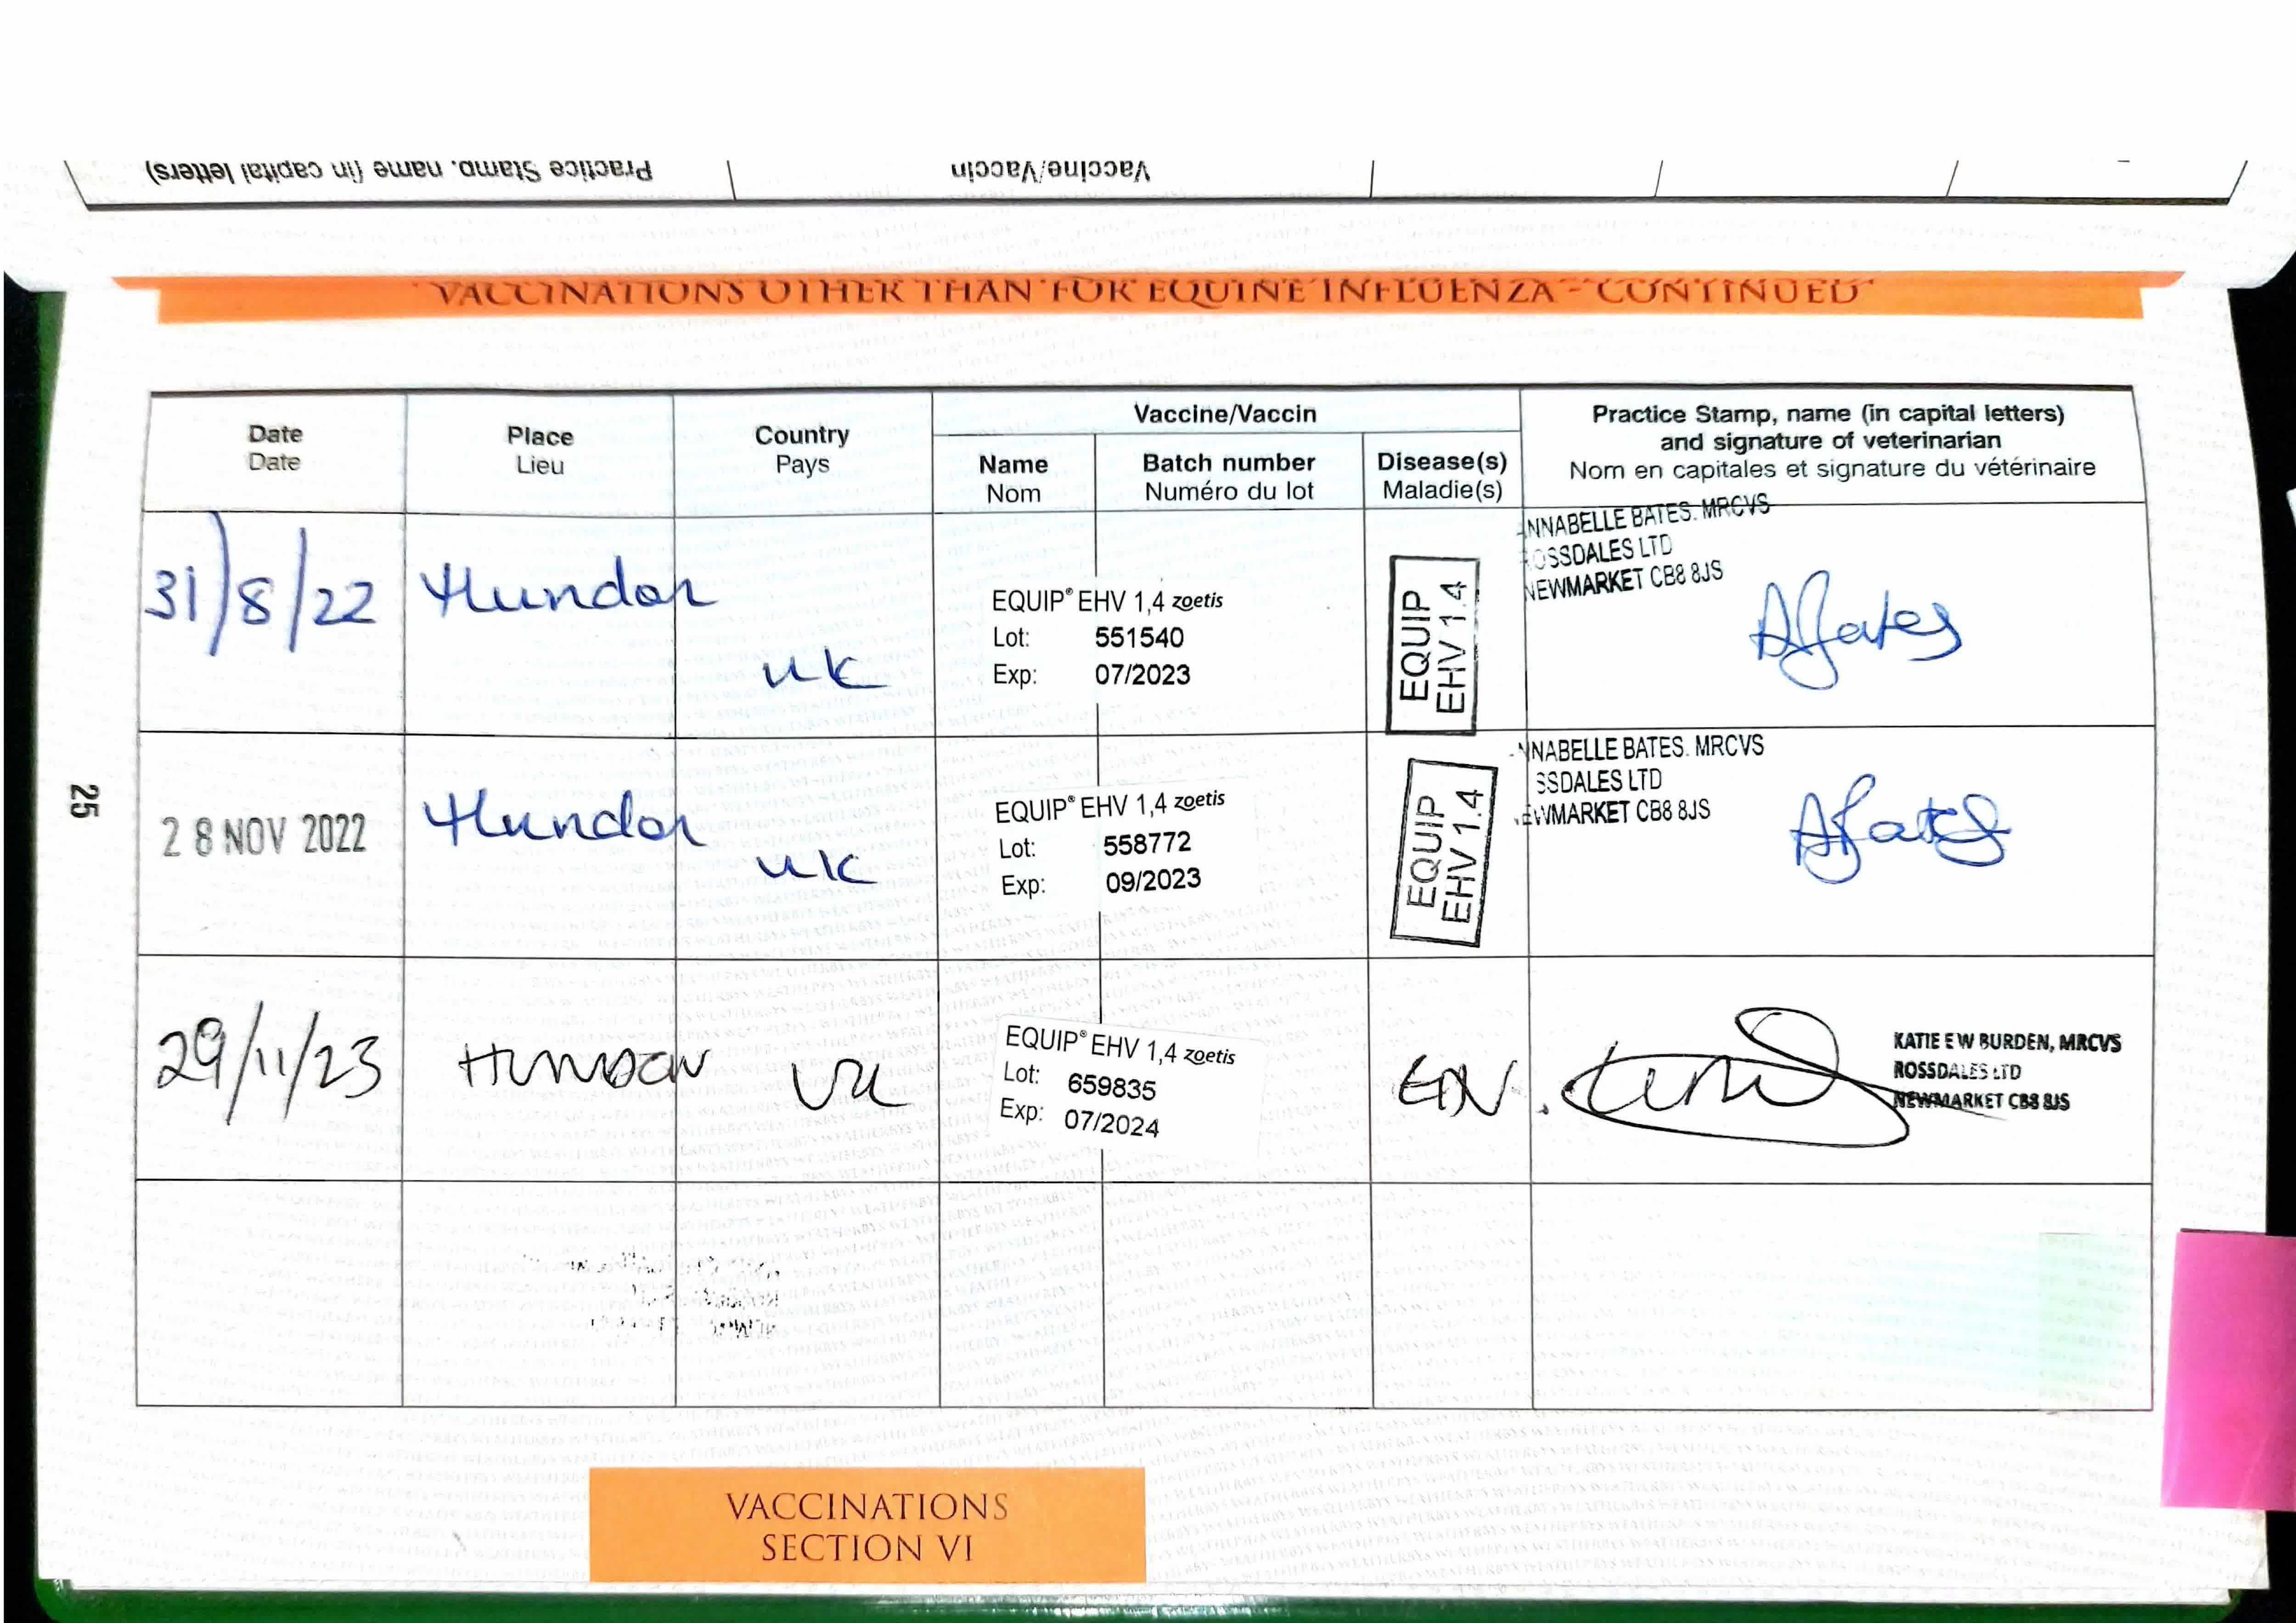 Practice Stamp, name (in capital letters)
Vaccine/Vaccin
VACCINATIONS OTHER THAN FOR EQUINE INFLUENZA - CONTINUED
Date
Date
Place
Lieu
Country
Pays
Vaccine/Vaccin
Name
Nom
Batch number
Numéro du lot
Disease(s)
Maladie(s)
Practice Stamp, name (in capital letters)
and signature of veterinarian
Nom en capitales et signature du vétérinaire
31/8/22
Hundon
UK
EQUIP® EHV 1,4 zoetis
Lot: 551540
Exp: 07/2023
EQUIP
EHV 1.4
NNABELLE BATES. MRCVS
OSSDALES LTD
NEWMARKET CB8 8JS
ABates
28 NOV 2022
Hundon
UK
EQUIP® EHV 1,4 zoetis
Lot: 558772
Exp: 09/2023
EQUIP
EHV 1.4
NNABELLE BATES. MRCVS
SSDALES LTD
EWMARKET CB8 8JS
ABates
29/11/23
HUNDON
UK
EQUIP® EHV 1,4 zoetis
Lot: 659835
Exp: 07/2024
KATIE E W BURDEN, MRCVS
ROSSDALES LTD
NEWMARKET CB8 8JS
25
VACCINATIONS
SECTION VI